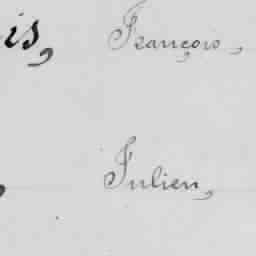 is, François,
, Julien,